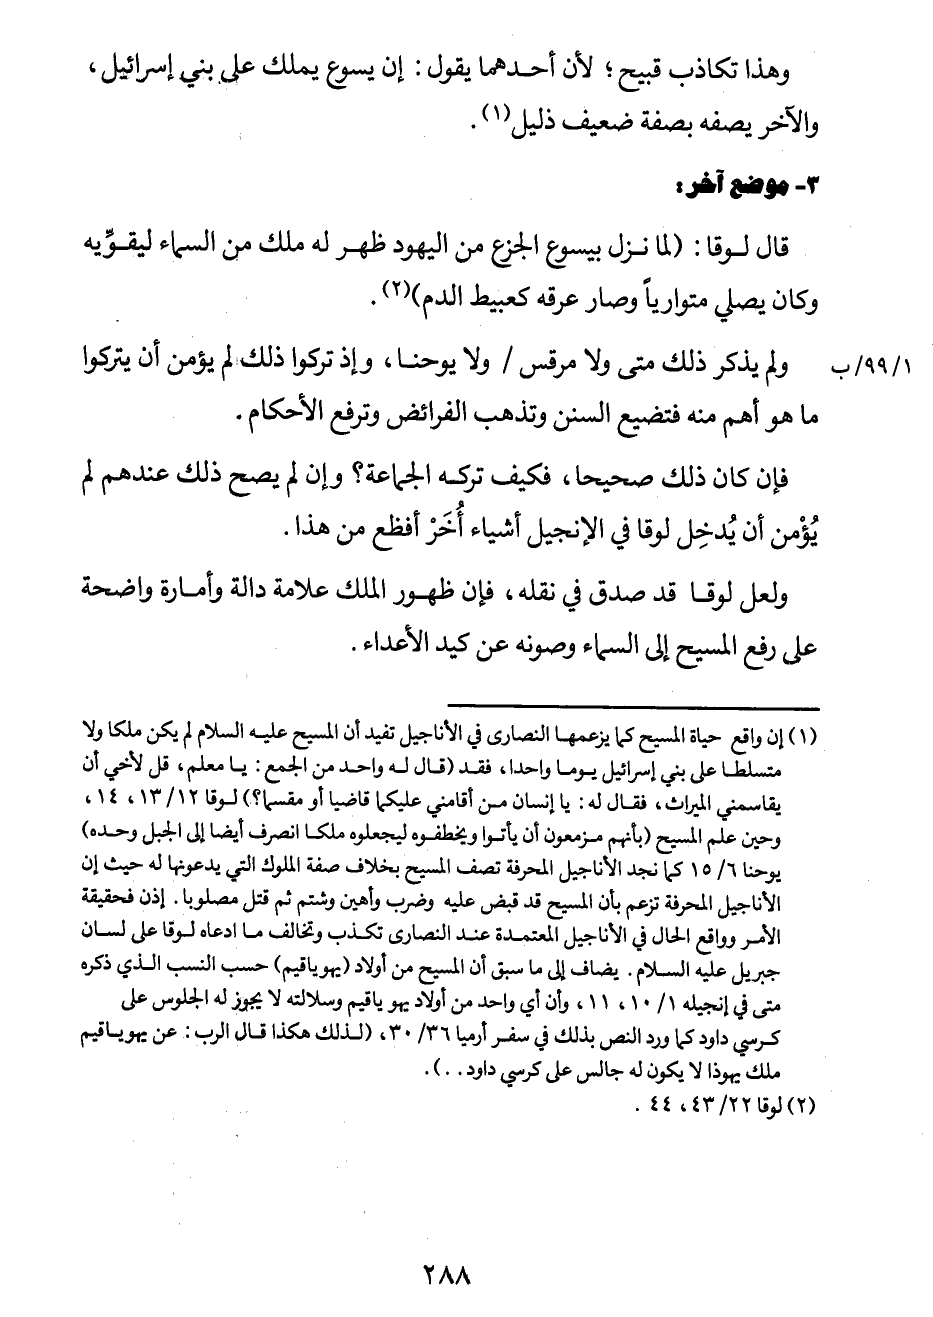 وهذا تكاذب قبيح؛ لأن أحدهما يقول: إن يسوع يملك على بني إسرائيل،
والآخر يصفه بصفة ضعيف ذليل(١).
٣- موضع آخر:
قال لوقا: (لما نزل بيسوع الجزع من اليهود ظهر له ملك من السماء ليقوِّيه
وكان يصلي متوارياً وصار عرقه كعبيط الدم)(٢).
ولم يذكر ذلك متى ولا مرقس / ولا يوحنا، وإذ تركوا ذلك لم يؤمن أن يتركوا
١/٩٩/ب
ما هو أهم منه فتضيع السنن وتذهب الفرائض وترفع الأحكام.
فإن كان ذلك صحيحا، فكيف تركه الجماعة؟ وإن لم يصح ذلك عندهم لم
يُؤْمن أن يُدخِل لوقا في الإنجيل أشياء أُخَرْ أفظع من هذا.
ولعل لوقا قد صدق في نقله، فإن ظهور الملك علامة دالة وأمارة واضحة
على رفع المسيح إلى السماء وصونه عن كيد الأعداء.
(١) إن واقع حياة المسيح كما يزعمها النصارى في الأناجيل تفيد أن المسيح عليه السلام لم يكن ملكا ولا
متسلطا على بني إسرائيل يوما واحدا، فقد (قال له واحد من الجمع: يا معلم، قل لأخي أن
يقاسمني الميراث، فقال له: يا إنسان من أقامني عليكما قاضيا أو مقسما؟) لوقا ١٢/ ١٣، ١٤،
وحين علم المسيح (بأنهم مزمعون أن يأتوا ويخطفوه ليجعلوه ملكا انصرف أيضا إلى الجبل وحده)
يوحنا ٦/ ١٥ كما نجد الأناجيل المحرفة تصف المسيح بخلاف صفة الملوك التي يدعونها له حيث إن
الأناجيل المحرفة تزعم بأن المسيح قد قبض عليه وضرب وأهين وشتم ثم قتل مصلوبا. إذن فحقيقة
الأمر وواقع الحال في الأناجيل المعتمدة عند النصارى تكذب وتخالف ما ادعاه لوقا على لسان
جبريل عليه السلام. يضاف إلى ما سبق أن المسيح من أولاد (يهوياقيم) حسب النسب الذي ذكره
متى في إنجيله ١/ ١٠، ١١، وأن أي واحد من أولاد يهو ياقيم وسلالته لا يجوز له الجلوس على
كرسي داود كما ورد النص بذلك في سفر أرميا ٣٦/ ٣٠، (لذلك هكذا قال الرب: عن يهوياقيم
ملك يهوذا لا يكون له جالس على كرسي داود..).
(٢) لوقا ٢٢/ ٤٣، ٤٤.
٢٨٨